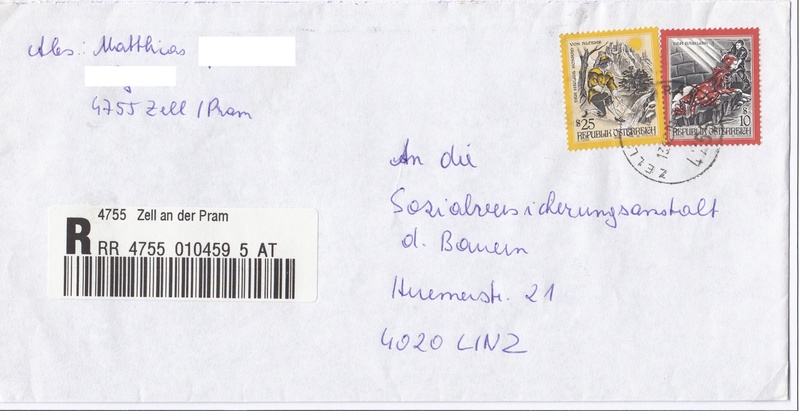 Abs.: Matthias
4755 Zell / Pram
S 25
REPUBLIK ÖSTERREICH
S 10
REPUBLIK ÖSTERREICH
An die
Sozialversicherungsanstalt
d. Bauern
Huemerstr. 21
4020 LINZ
4755 Zell an der Pram
R RR 4755 010459 5 AT